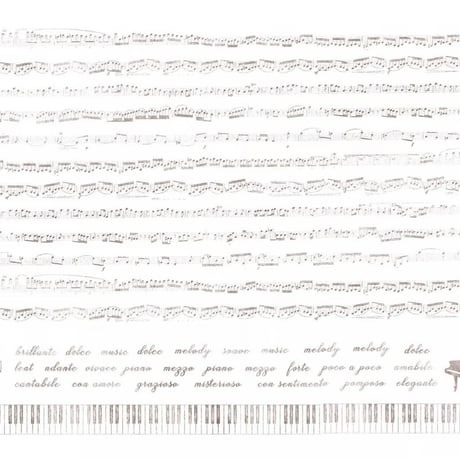 brillante dolce music dolce melody soave music melody melody dolce
leat adante vivace piano mezzo piano mezzo forte poco a poco amabile
cantabile con amore grazioso misterioso con sentimento pomposo elegante